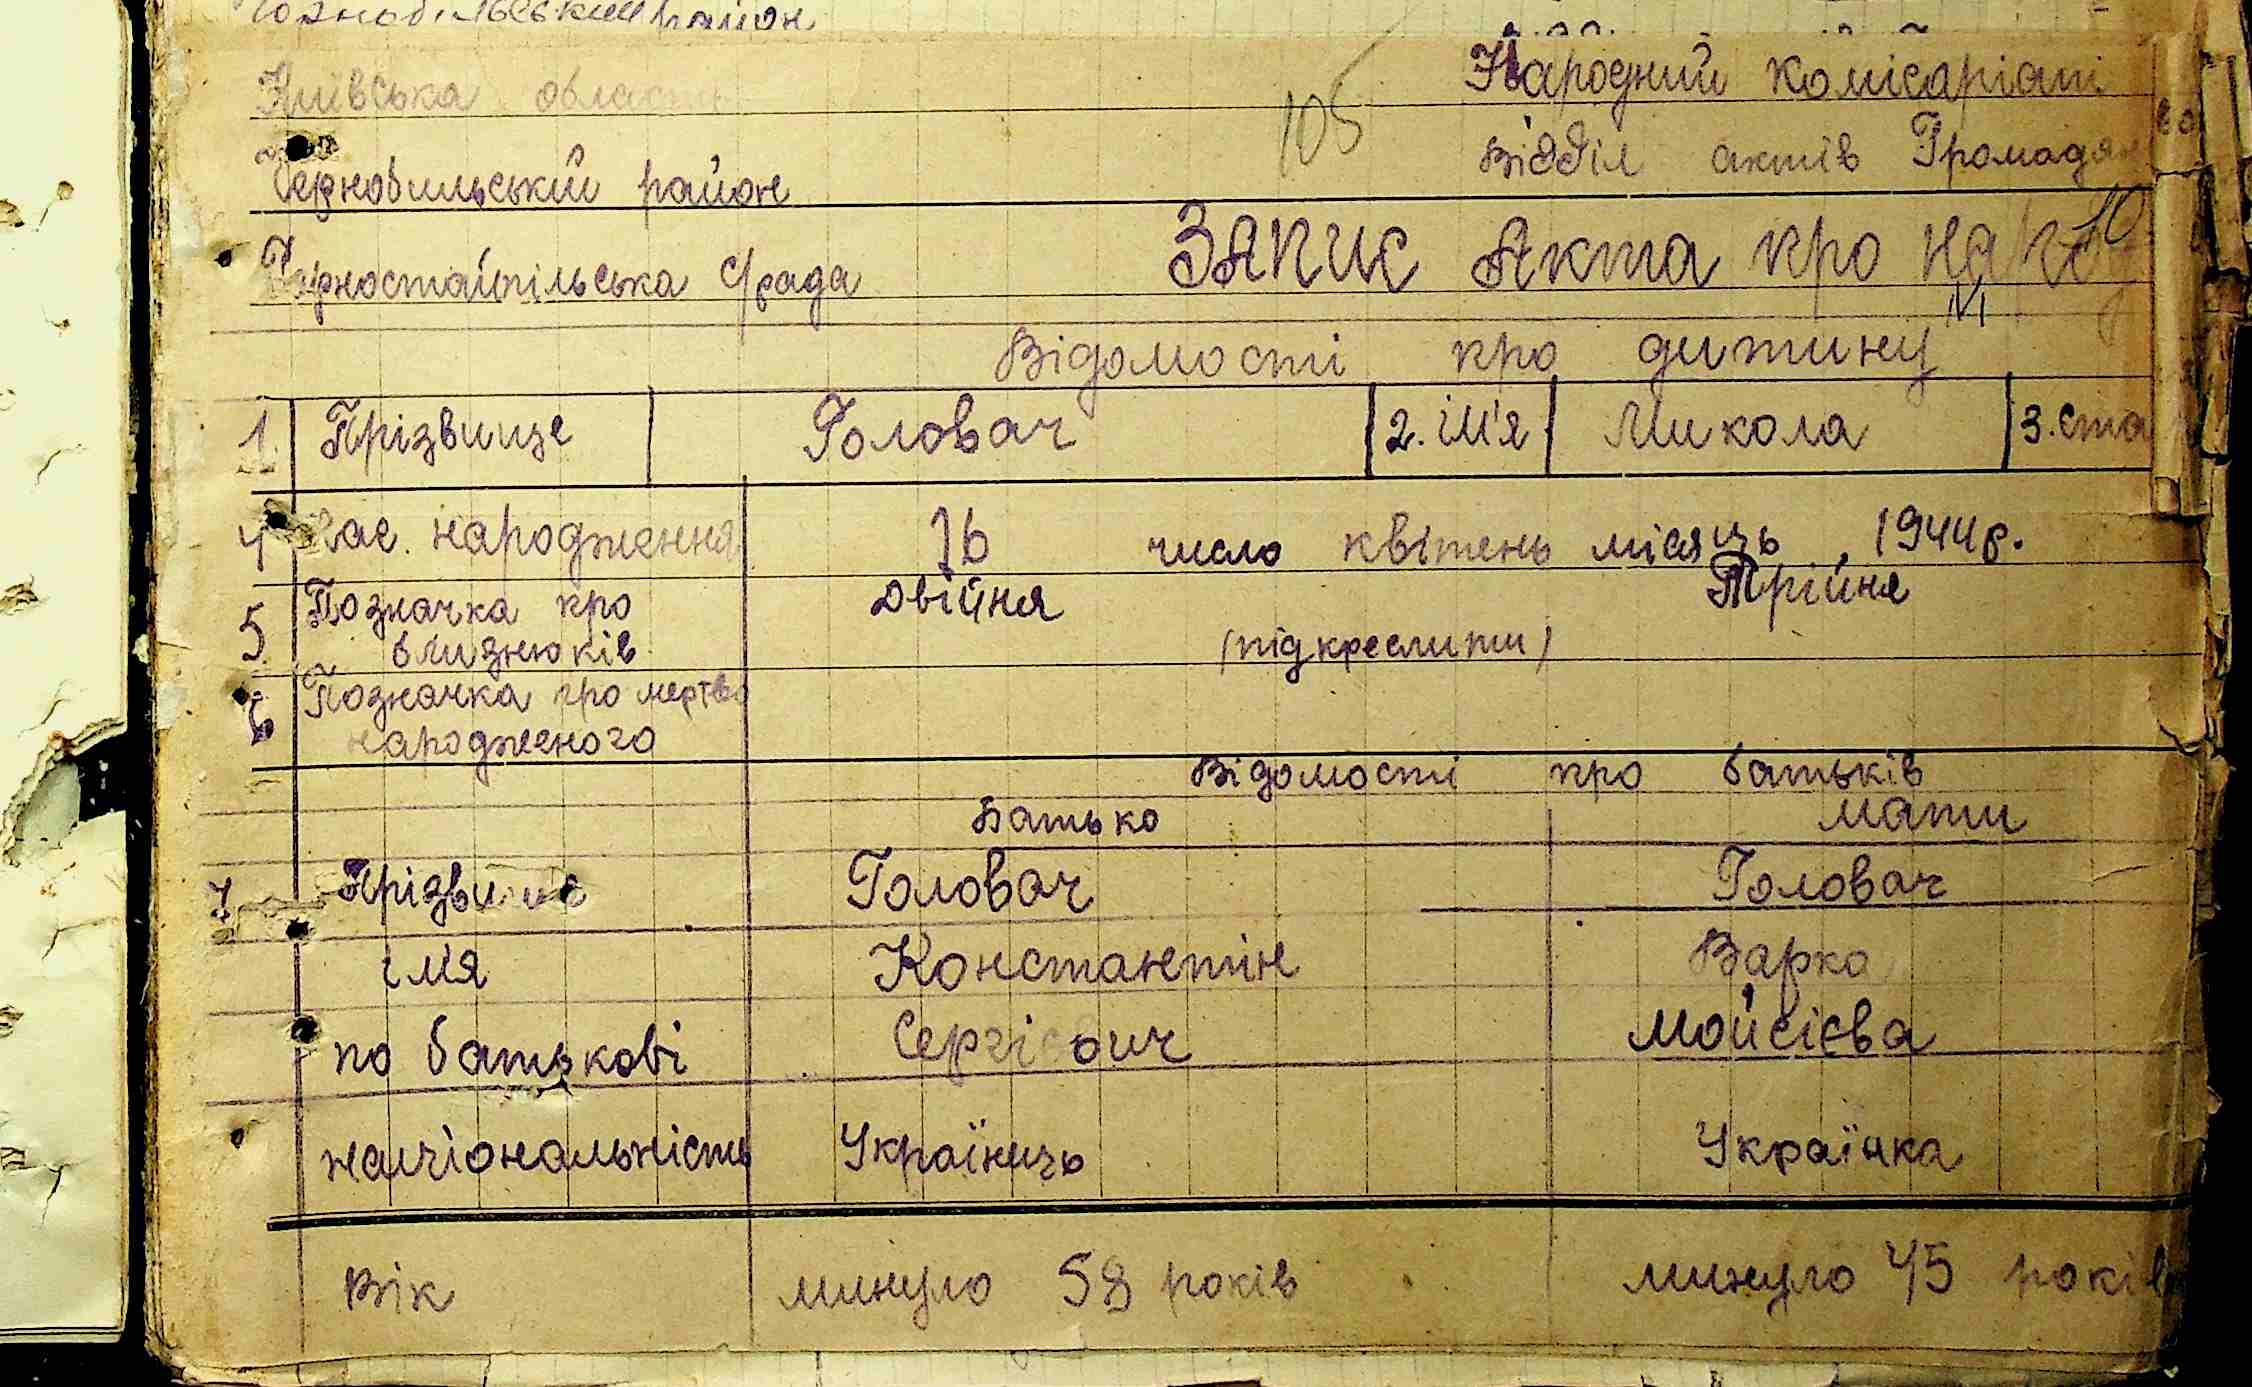 район
Київська область
Народний комісаріат
105
Чорнобильський район
Відділ актів Громадян
10
Горностайпільська с/рада
Запис Акта про на
VI
Відомості про дитину
1 Прізвище Головач 2. ім'я Микола 3. ста
4 Час народження 16 число квітень місяць 1944 р.
5 Позначка про двійня Трійня
близнюків (підкреслити)
6 Позначка про мертво
народженого
Відомості про батьків
Батько мати
7 Прізвище Головач Головач
ім'я Константин Варка
по батькові Сергієвич Мойсієва
національність Українець Українка
Вік минуло 58 років минуло 45 років